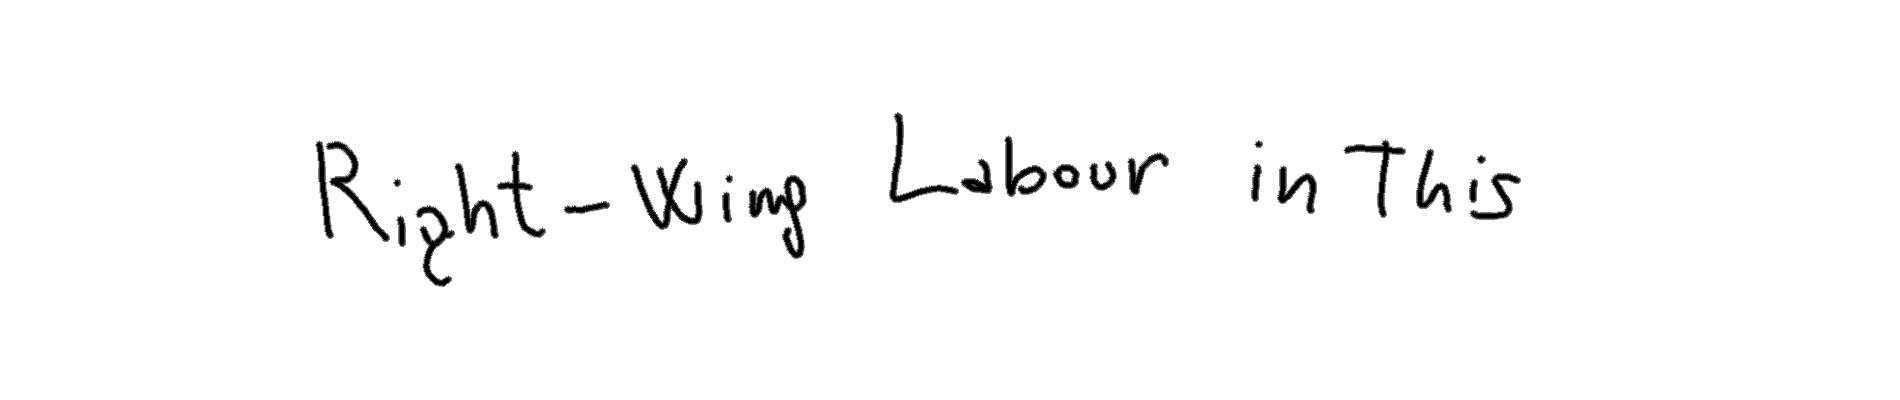 Right-Wing Labour in This